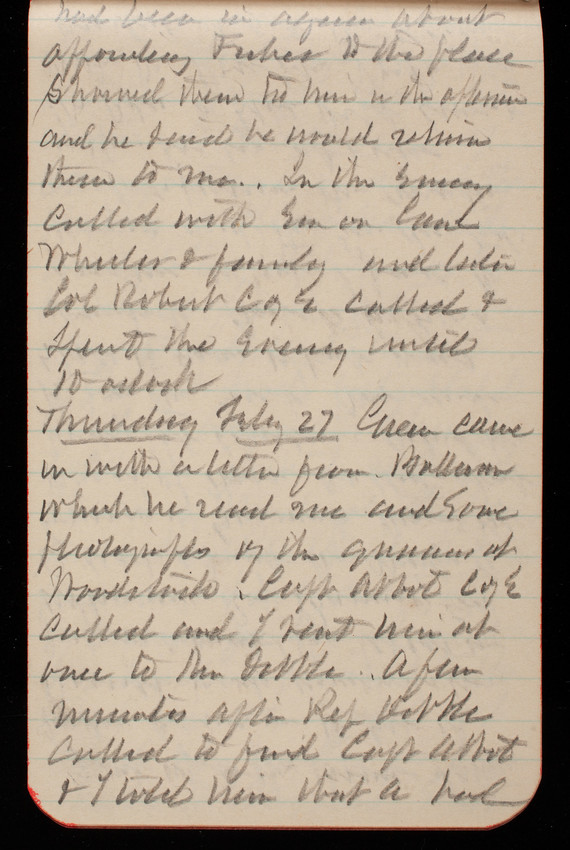 had been in again about
appointing Fisher to the place
showed them to him in the afternoon
and he said he would return
these to me. . In the Evening
called with Em on Com
Wheeler & family and later
Col Robert C of E called &
Spent the Evening until
10 oclock
Thursday July 27 Green came
in with a letter from
which he read me and Some
photographs of the at
Woodstock. Capt Abbot C of E
called and I sent him at
once to . A few
minutes after Rep
called to find Capt Abbot
& I told him that A had